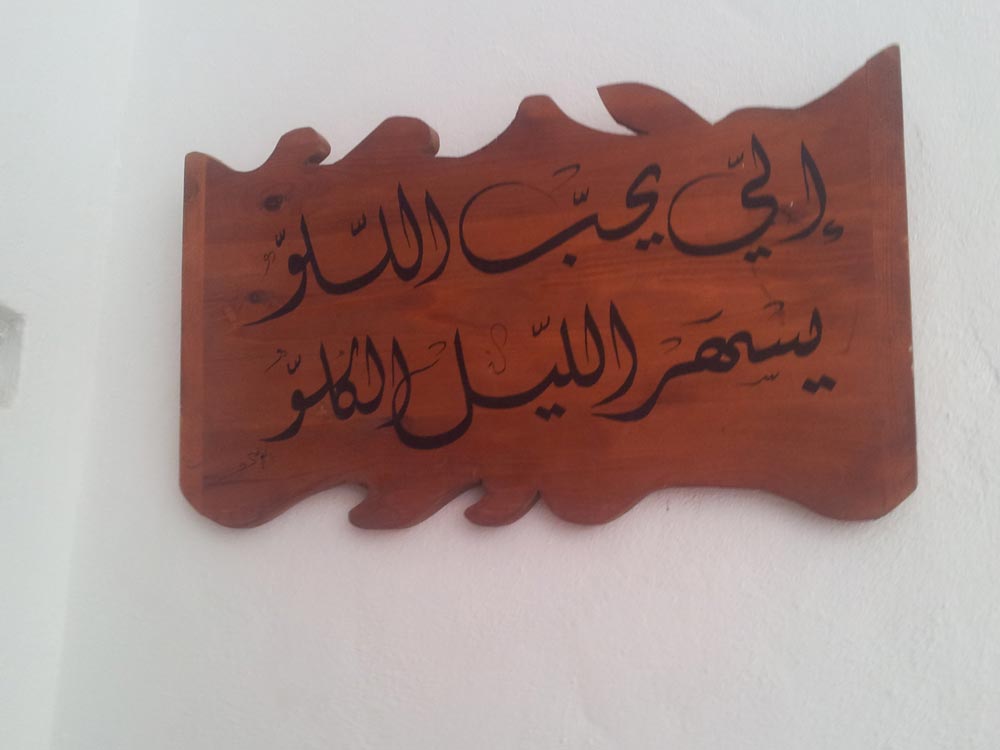 إليّ يحبّ اللّلوّ
يسهر الليّل الكُلوّ